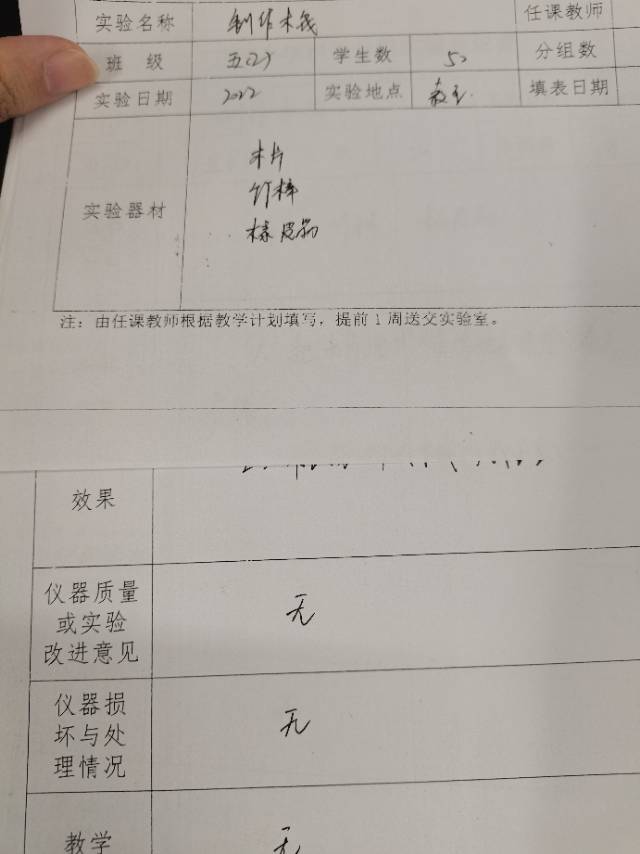 实验名称 制作木筏 任课教师
班 级 五(2) 学生数 52 分组数
实验日期 2022 实验地点 教室 填表日期
木片
竹棒
实验器材
橡皮筋
注:由任课教师根据教学计划填写,提前1周送交实验室。
效果
仪器质量 无
或实验
改进意见
仪器损 无
坏与处
理情况
教学 无